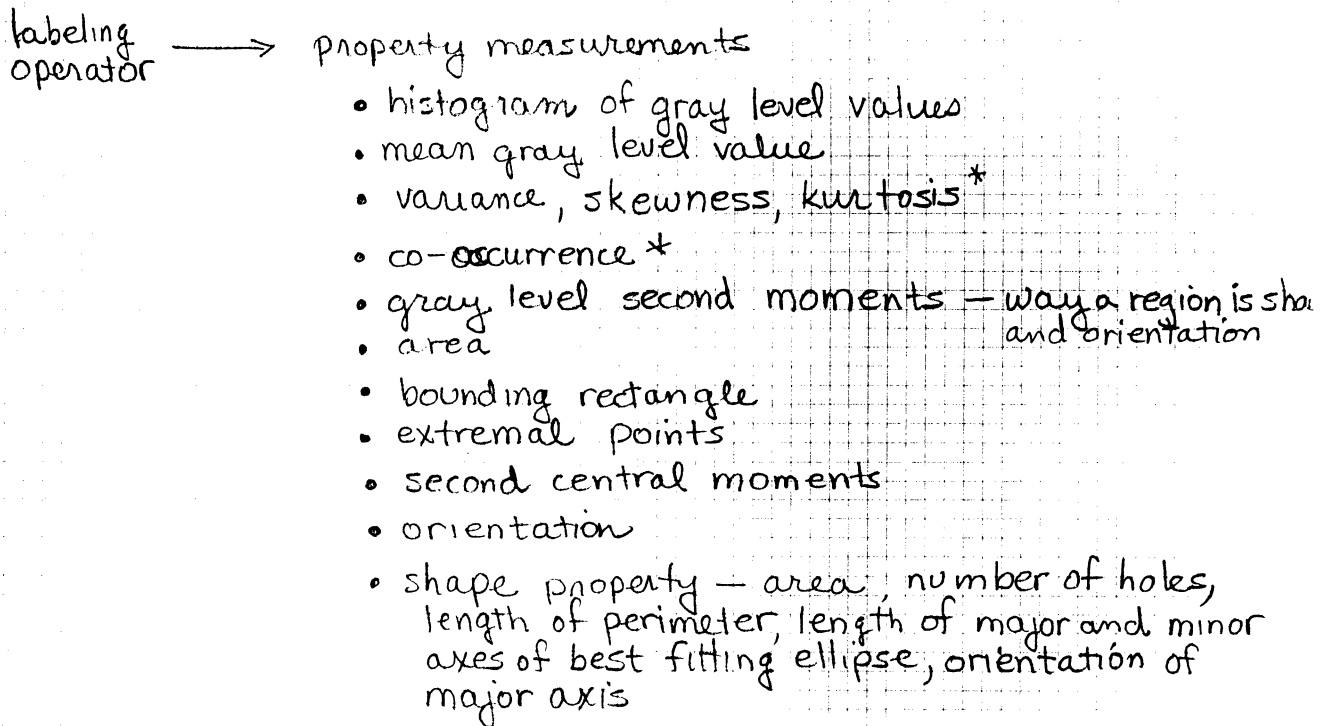 labeling
operator → property measurements
• histogram of gray level values
• mean gray level value
• variance, skewness, kurtosis*
• co-occurrence*
• gray level second moments – way a region is
and orientation
• area
• bounding rectangle
• extremal points
• second central moments
• orientation
• shape property – area, number of holes,
length of perimeter, length of major and minor
axes of best fitting ellipse, orientation of
major axis